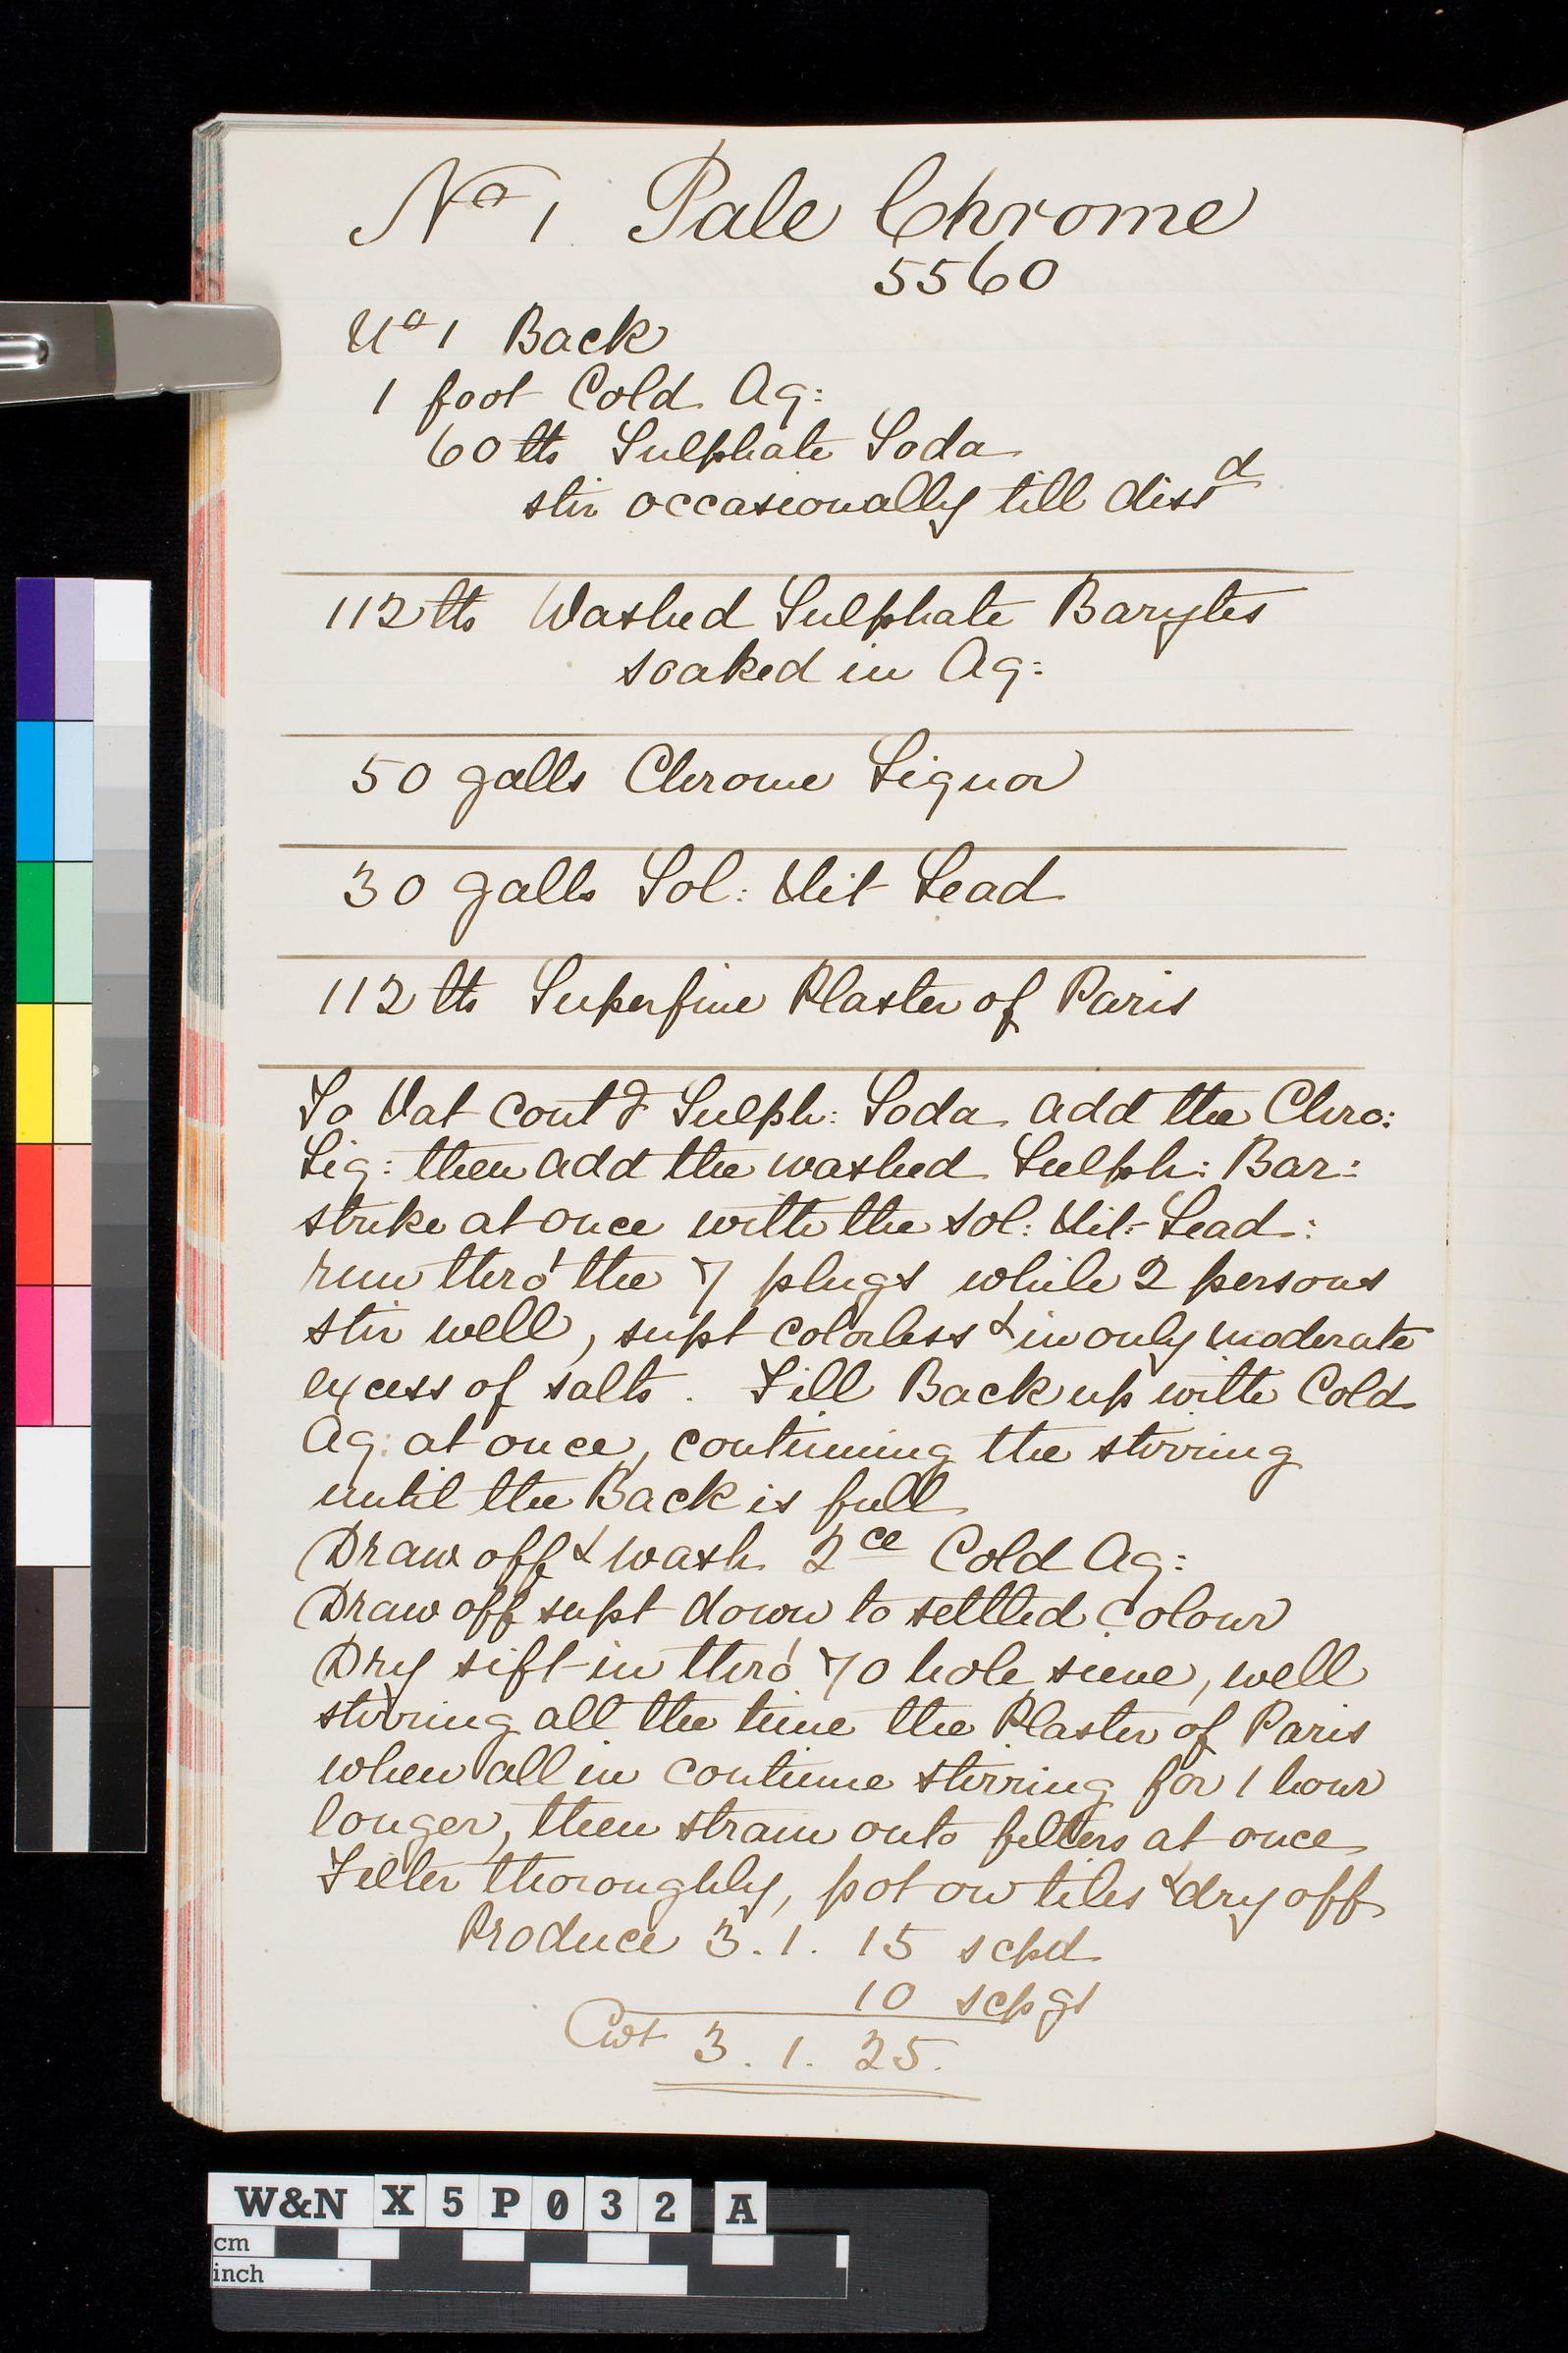 No 1 Pale Chrome
5560
No 1 Back
1 foot Cold Aq:
60 lbs Sulphate Soda
stir occasionally till dissd
112 lbs Washed Sulphate Barytes
soaked in Aq:
50 galls Chrome Liquor
30 galls Sol: Nit Lead
112 lbs Superfine Plaster of Paris
To Vat contg Sulph: Soda add the Chro:
Liq: then add the washed Sulph: Bar:
strike at once with the Sol: Nit: Lead:
run thro' the 7 plugs while 2 persons
stir well, supt colorless & in only moderate
excess of salts. Fill Back up with Cold
Aq: at once, continuing the stirring
until the Back is full
Draw off & wash 2ce Cold Aq:
Draw off supt down to settled colour
Dry sift in thro' 70 hole sieve, well
stirring all the time the Plaster of Paris
when all in continue stirring for 1 hour
longer, then strain onto filters at once
Filter thoroughly, pot on tiles & dry off
Produce 3. 1. 15 scpd
10 scpgs
Cwt 3. 1. 25.
W&N X5P032 A
cm
inch